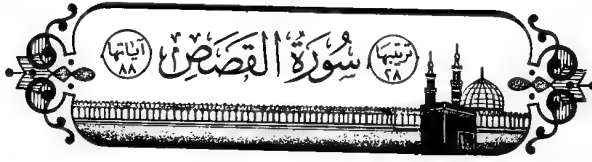 ترتيبها ٢٨ سُورَةُ القَصَصِ آياتها ٨٨